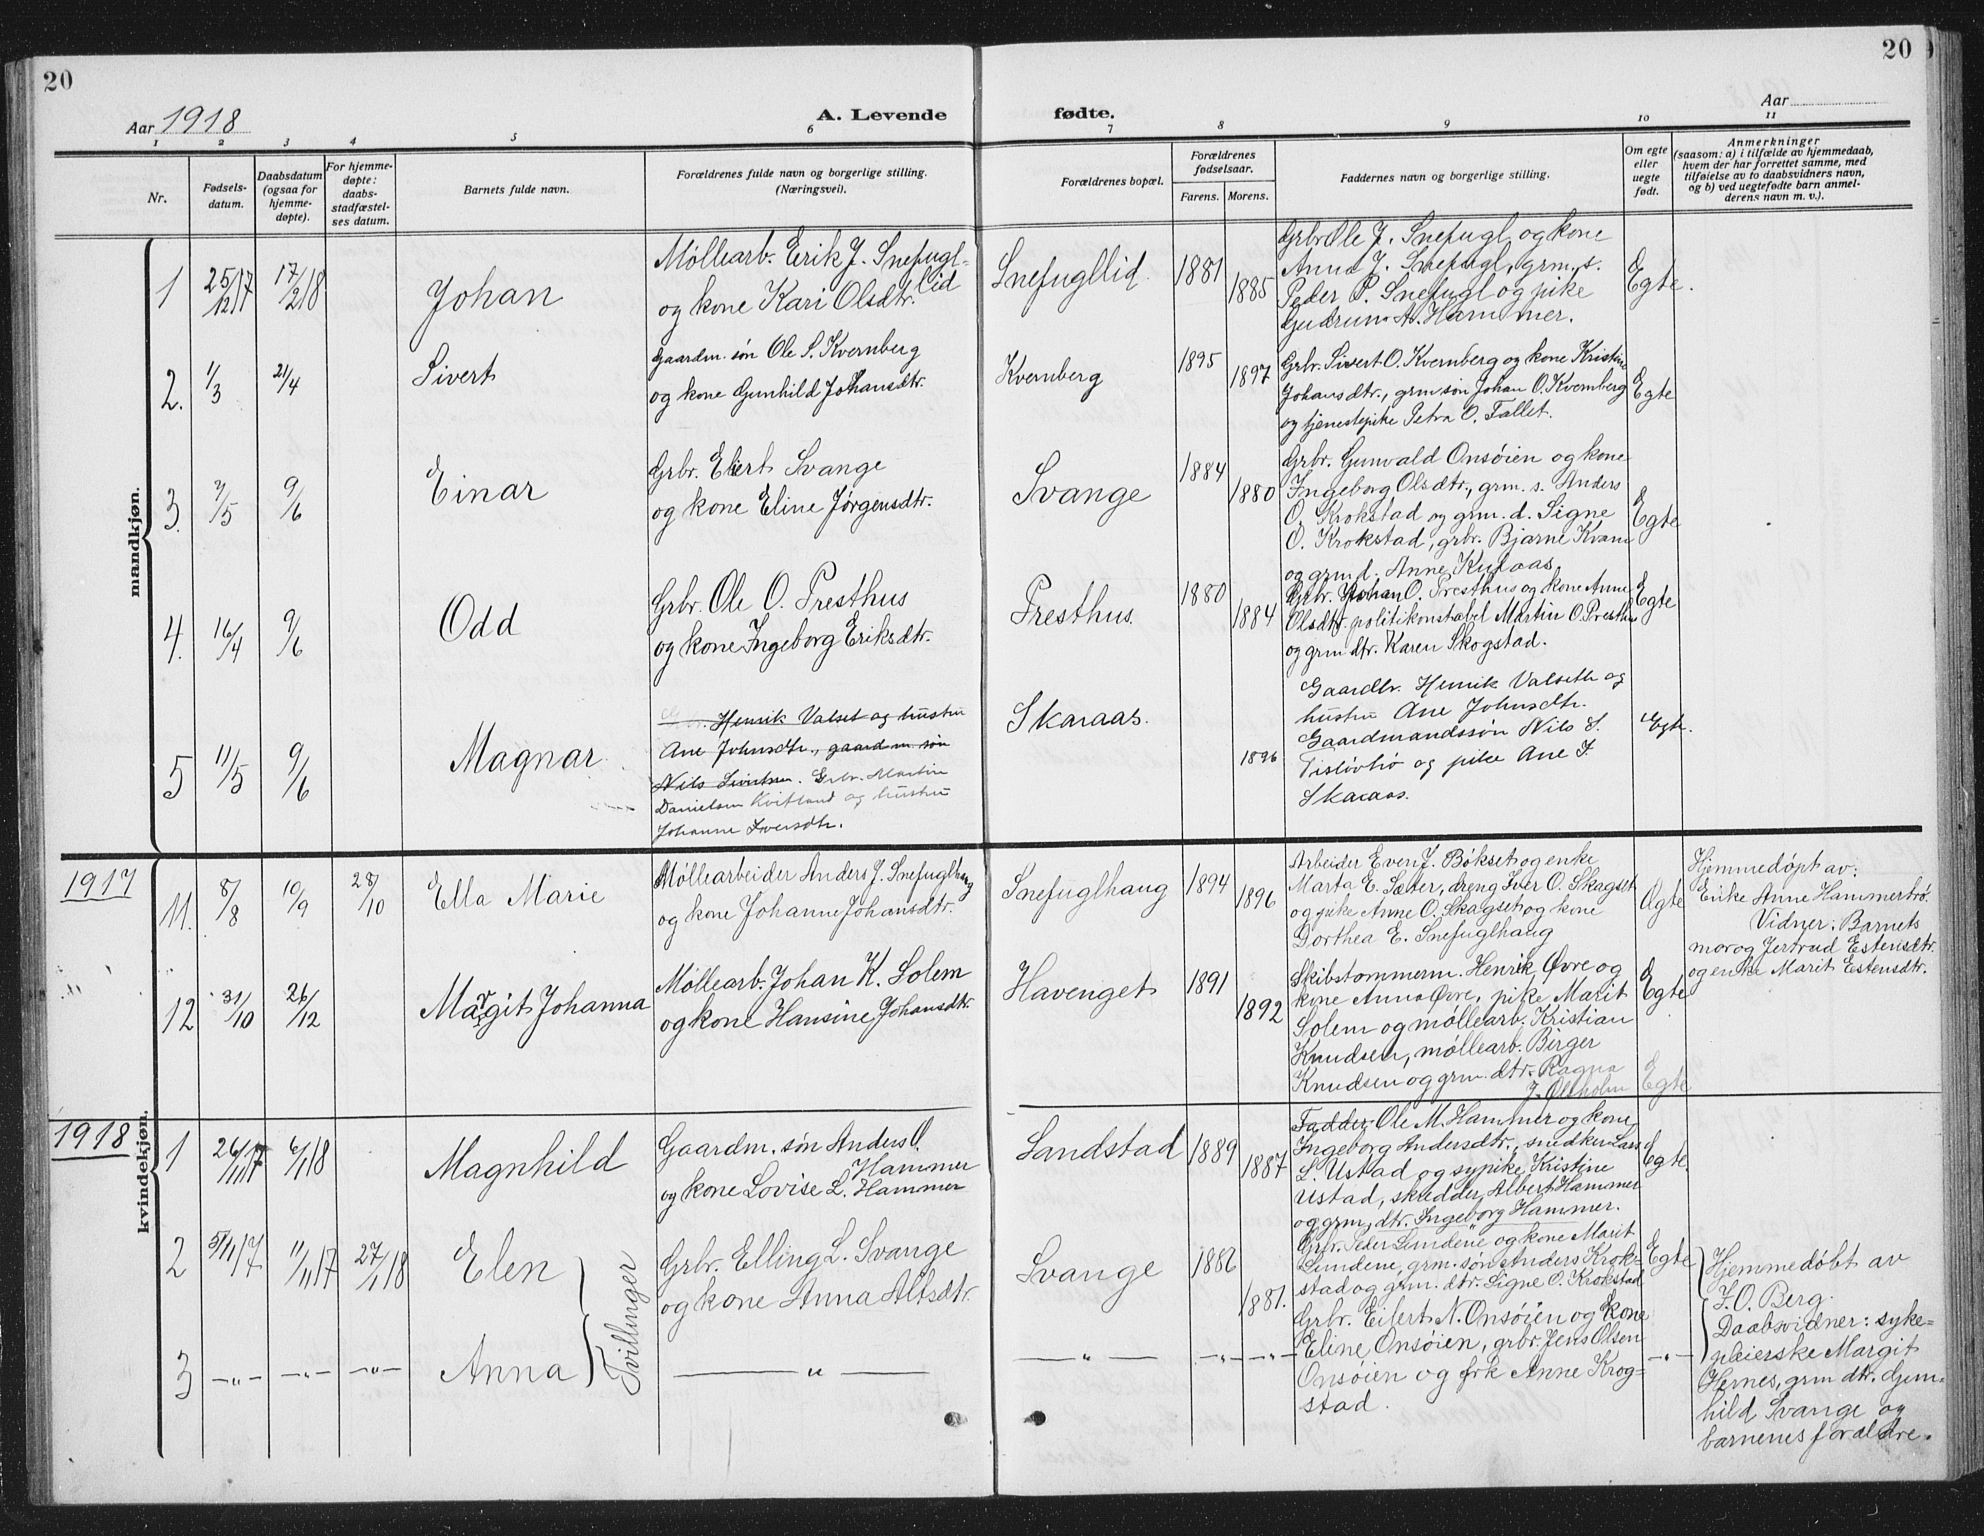 20
20
Aar 1918
A. Levende
fødte.
Aar
1 2 3 4 5 6 7 8 9 10 11
Nr.
Fødsels-
datum.
Daabsdatum
(ogsaa for
hjemme-
døpte).
For hjemme-
døpte:
daabs-
stadfæstel-
ses datum.
Barnets fulde navn.
Forældrenes fulde navn og borgerlige stilling.
(Næringsvei).
Forældrenes bopæl.
Forældrenes
fødselsaar.
Farens. Morens.
Faddernes navn og borgerlige stilling.
Om egte
eller
uegte
født.
Anmerkninger
(saasom: a) i tilfælde av hjemmedaab,
hvem der har forrettet samme, med
tilføielse av to daabsvidners navn,
og b) ved uegtefødte barn anmel-
derens navn m. v.).
mandkjøn.
1
25/12 17
17/2 18
Johan
Møllearb. Erik J. Snefugl-
lid
og kone Kari Olsdtr.
Snefugllid.
1881
1885
Grbr Ole J. Snefugl og kone
Anna J. Snefugl, grm. s.
Peder P. Snefugl og pike
Gudrun A. Hammer.
Egte.
2.
1/3
21/4
Sivert
Gaardm. søn Ole S. Kvernberg
og kone Gunhild Johansdtr.
Kvernberg
1895
1897
Grbr. Sivert O. Kvernberg og kone Kristine
Johansdtr., grm søn Johan O. Kvernberg
og tjenestepike Petra O. Fallet.
Egte
3.
/5
9/6
Einar
Grbr. Eilert Svange
og kone Eline Jørgensdtr.
Svange
1884
1880
Grbr. Gunvald Onsøien og kone
Ingeborg Olsdtr., grm. s. Anders
O. Krokstad og grm. d. Signe
O. Krokstad, grbr. Bjarne Kvam
og grm d. Anne
Egte
4.
16/4
9/6
Odd
Grbr. Ole O. Presthus
og kone Ingeborg Eriksdtr.
Presthus.
1880
1884
Grbr. Johan O. Presthus og kone Anne
Olsdtr. politikonstabel Martin O. Presthus
og grm dtr. Karen Skogstad.
Egte
5
11/5
9/6
Magnar
Henrik Valset og hustru
Ane Johnsdtr., gaardm søn
Nils Sivertsen. Grbr. Martin
Danielsen Kvitland og hustru
Johanne Iversdtr.
Skaraas.
1896
Gaardbr. Henrik Valseth og
hustru Ane Johnsdtr.
Gaardmandssøn Nils S.
Tisløvtrø og pike Ane I.
Skaraas.
Egte.
1917
kvindekjøn.
11.
8/8
10/9
28/10
Ella Marie
Møllearbeider Anders J. Snefuglhaug
og kone Johanne Johansdtr.
Snefuglhaug
1894
1896
Arbeider Even J. Bökset og enke
Marta E. Sæter, dreng Iver O. Skagset
og pike Anne O. Skagset og kone
Dorthea E. Snefuglhaug
Ægte
Hjemmedøpt av:
Enke Anne Hammertrø.
Vidner: Barnets
mor og Jertrud Estensdtr.
og enke Marit Estensdtr.
12
31/10
26/12
Margit Johanna
Møllearb. Johan K. Solem
og kone Hansine Johansdtr.
Havenget
1891
1892
Skibstømmerm. Henrik Øvre og
kone Anna Øvre, pike Marit
Solem og møllearb. Kristian
Knudsen, møllearb. Birger
Knudsen og grm. dtr. Ragna
J. Øksholm
Egte
Egte
1918
1
26/11 17
6/1 18
Magnhild
Gaardm. søn Anders O.
Hammer
og kone Lovise L. Hammer
Sandstad
1889
1887
Fadder Ole M. Hammer og kone
Ingeborg Andersdtr., snedker Lars
L. Ustad og sypike Kristine
Ustad, skrædder Albert Hammer
og grm. dtr. Ingeborg Hammer.
Egte
2
5/11 17
11/11 17
27/1 18
Elen
Tvillinger
Grbr. Elling L. Svange
og kone Anna Altsdtr.
Svange
1886
1881.
Grbr. Peder Lundene og kone Marit
Lundene, grm. søn Anders Krok-
stad og grm. dtr. Signe O. Krokstad
Egte
Hjemmedøbt av
J. O. Berg.
Daabsvidner: syke-
pleierske Margit
Hernes, grm dtr. Gjem-
hild Svange og
barnenes forældre.
3
—„—
—„—
—„—
Anna
—„—
—„—
—„—
—„—
Grbr. Eilert N. Onsøien og kone
Eline Onsøien, grbr. Jens Olsen
Onsøien og frk Anne Krog-
stad.
—„—